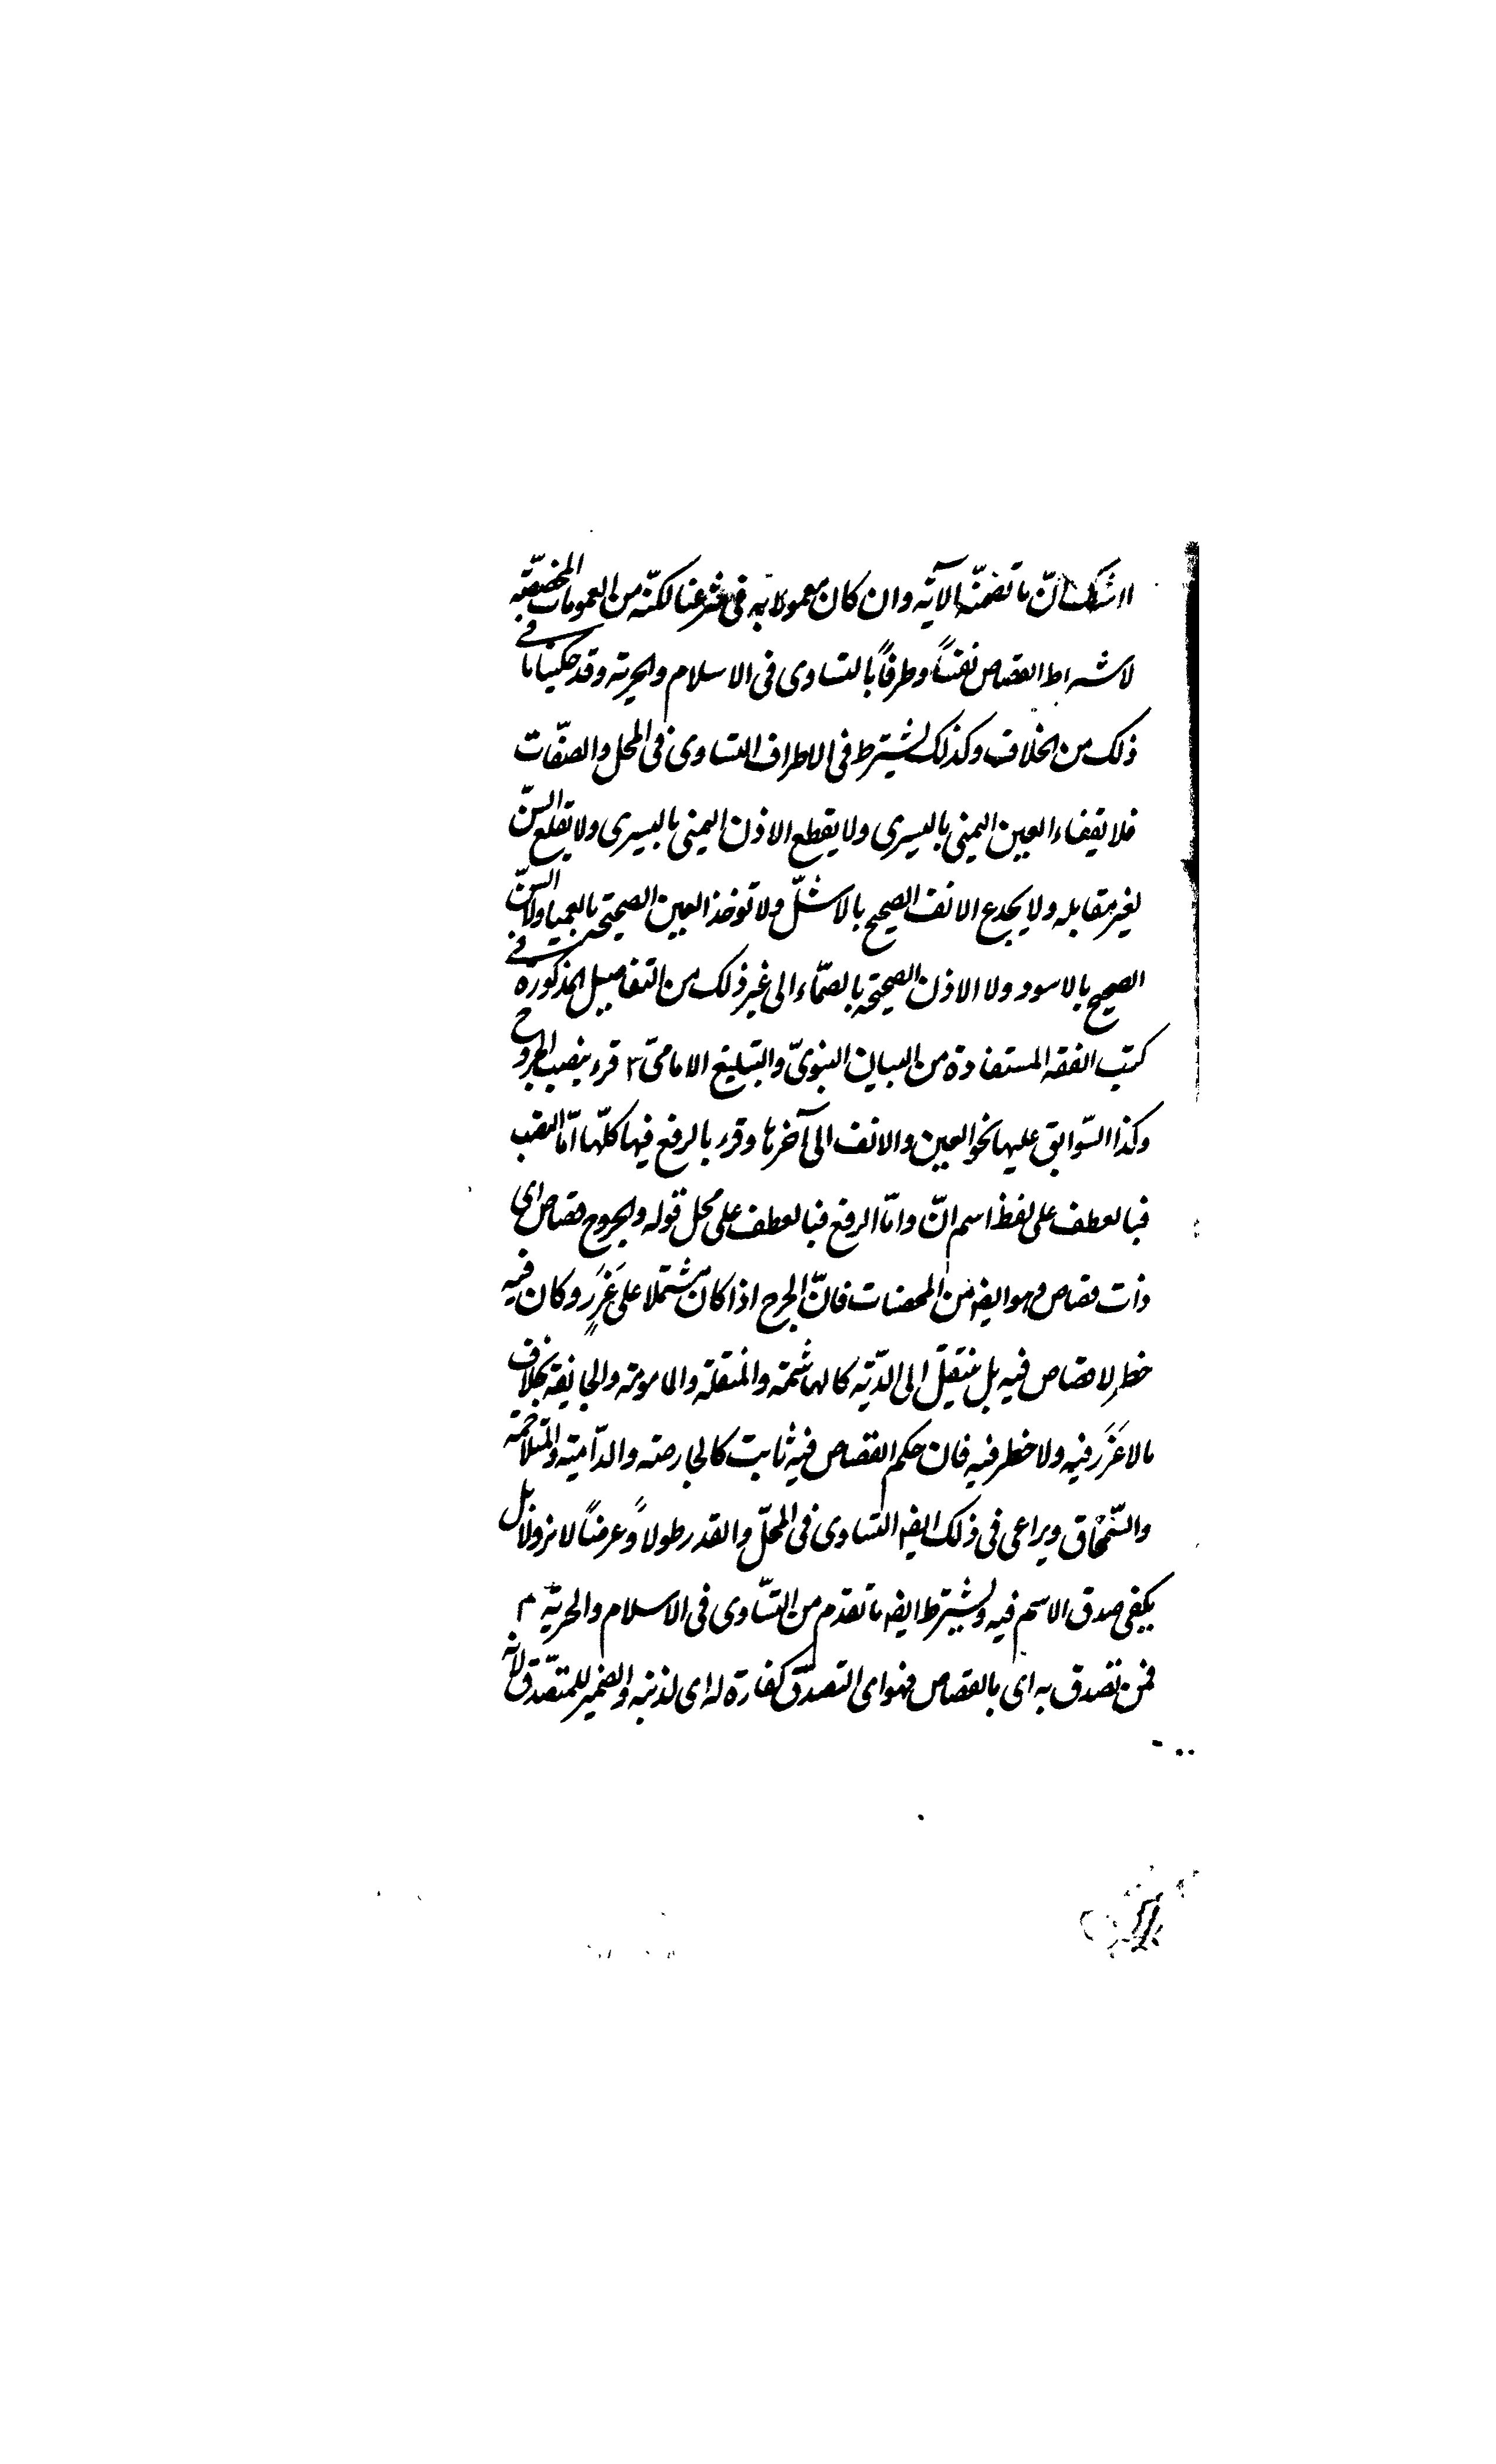 لا شك انّ ما تضمنّه الآية وان كان معمولا به فى شرعنا لكنّه من العمومات المخصّصة
لاشتراط القصاص نفساً وطرفاً بالتساوى فى الاسلام والحرية وقد حكينا ما فى
ذلك من الخلاف وكذلك يشترط فى الاطراف التساوى فى المحل والصفّات
فلا يقفاء العين اليمنى باليسرى ولا يقطع الاذن اليمنى باليسرى ولا يقلع السنّ
لغير مقابله ولا يجدع الانف الصحيح بالاشلّ ولا توخذ العين الصحيحة بالعمياء ولا السنّ
الصحيح بالاسود ولا الاذن الصحيحة بالصمّاء الى غير ذلك من التفاصيل المذكورة فى
كتب الفقه المستفادة من البيان النبوىّ والتبليغ الامامىّ ٣ قرء بنصب الجروح
وكذا السّوابق عليها نحو العين والانف الى آخرها وقرء بالرفع فيها كلّها امّا النصب
فبالعطف على لفظ اسم انّ وامّا الرفع فبالعطف على محل قوله والجروح قصاص اى
ذات قصاص وهو ايضه من المخصصات فانّ الجرح اذا كان مشتملا على غَرَرٍ وكان فيه
خطر لا قصاص فيه بل ينتقل الى الدّية كالهاشمة والمنقلة والمامومة والجايفة بخلاف
ما لا غَرَر فيه ولا خطر فيه فان حكم القصاص فيه ثابت كالحارصة والدّامية والمتلاحمة
والسّمحاق ويراعى فى ذلك ايضه التساوى فى المحلّ والقدر طولاً وعرضاً لا نزولا بل
يكفى صدق الاسم فيه ويشترط ايضه ما تقدم من التسّاوى فى الاسلام والحريّة ۴
فمن تصدق به اى بالقصاص فهو اى التصدّق كفارة له اى لذنبه والضمير للمتصّدق لانّه